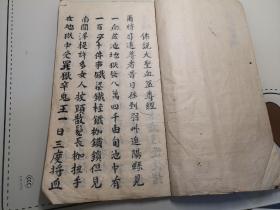 佛說大聖血盆尊經
爾時目連尊者昔日往到羽州追陽縣見
一血盆池地獄八萬四千由旬池中有
一百件事鐵梁鐵柱鐵枷鐵鎖但見
南閻浮提許多女人披頭散髮長枷扭手
在地獄中受罪獄卒鬼王一日三度將